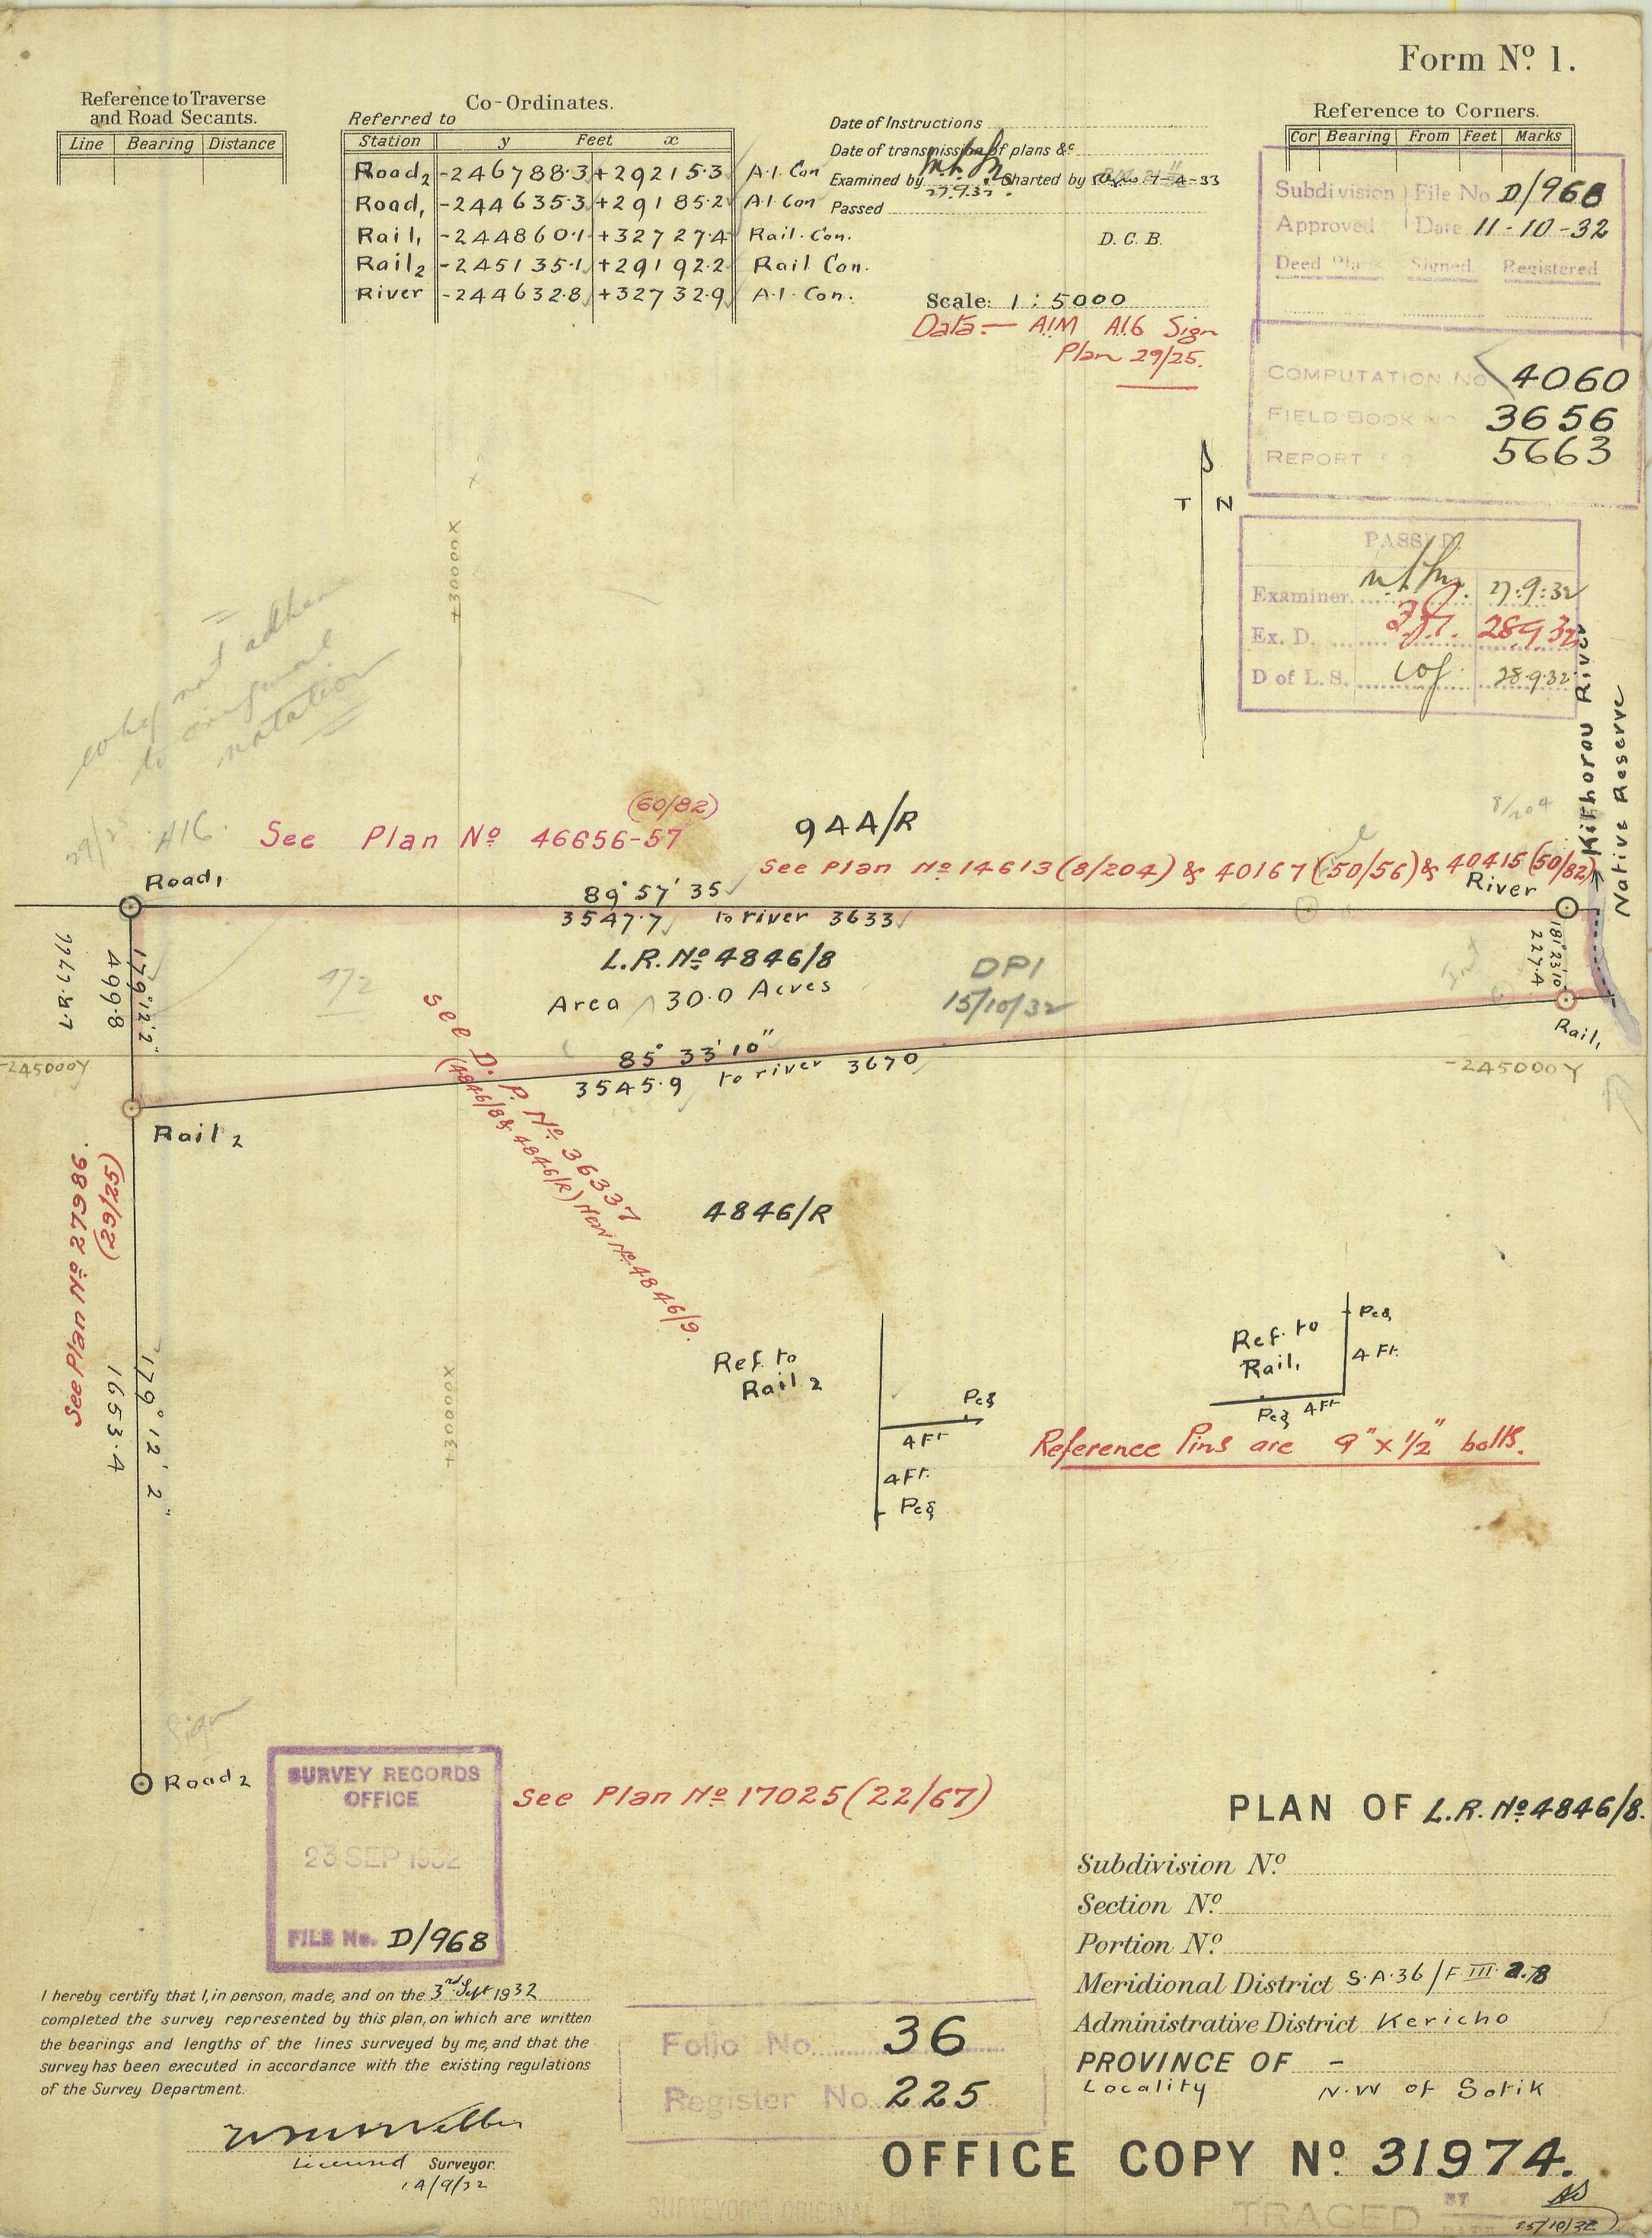 Form Nº 1.
Reference to Traverse
and Road Secants.
Line Bearing Distance
Co-Ordinates.
Referred to
Station y Feet x
Road₂ -246788.3 +29215.3 A.1. Con
Road₁ -244635.3 +29185.2 A.1. Con
Rail₁ -244860.1 +32727.4 Rail. Con.
Rail₂ -245135.1 +29192.2 Rail Con.
River -244632.8 +32732.9 A.1. Con.
Date of Instructions
Date of transmission of plans &c
Examined by 27.9.32 Charted by 7-4-33
Passed
D. C. B.
Scale: 1 : 5000
Data:— A1M A16 Sign
Plan 29/25.
Reference to Corners.
Cor Bearing From Feet Marks
Subdivision File No D/968
Approved Date 11-10-32
Deed Plans Signed Registered
COMPUTATION No 4060
FIELD BOOK No 3656
REPORT 5663
T N
PASSED
Examiner 27:9:32
Ex. D. 28 9 32
D of L.S. 28.9.32
+30000X
Kithorau River
Native Reserve
not adhere
to original
notation
29/25 A16.
See Plan Nº 46656-57
(60/82)
94A/R
8/204
See Plan Nº 14613 (8/204) & 40167 (50/56) & 40415 (50/82)
Road₁
River
89° 57' 35
3547.7 to river 3633
L.R. Nº 4846/8
Area 30.0 Acres
DPI
15/10/32
179° 12' 2"
499.8
181° 23' 10
227.4
85° 33' 10"
3545.9 to river 3670
Rail₁
-245000Y
-245000Y
Rail₂
See D.P. Nº 36337
(4846/8 & 4846/R) New Nº 4846/9.
See Plan Nº 27986.
(29/25)
179° 12' 2"
1653.4
4846/R
+30000X
Ref. to
Rail₂
Peg
4 Ft
4 Ft.
Peg
Ref. to
Rail₁
Peg
4 Ft.
Peg 4 Ft
Reference Pins are 9" x 1/2" bolts.
Sign
Road₂
SURVEY RECORDS
OFFICE
23 SEP 1932
FILE No. D/968
See Plan Nº 17025 (22/67)
PLAN OF L.R. Nº 4846/8.
Subdivision Nº
Section Nº
Portion Nº
Meridional District S.A.36/F III 2.78
Administrative District Kericho
PROVINCE OF –
Locality N.W of Sotik
I hereby certify that I, in person, made, and on the 3rd Sept 1932
completed the survey represented by this plan, on which are written
the bearings and lengths of the lines surveyed by me, and that the
survey has been executed in accordance with the existing regulations
of the Survey Department.
Licensed Surveyor.
14/9/32
Folio No. 36
Register No. 225
OFFICE COPY Nº 31974.
SURVEYOR'S ORIGINAL
TRACED BY
15/10/32